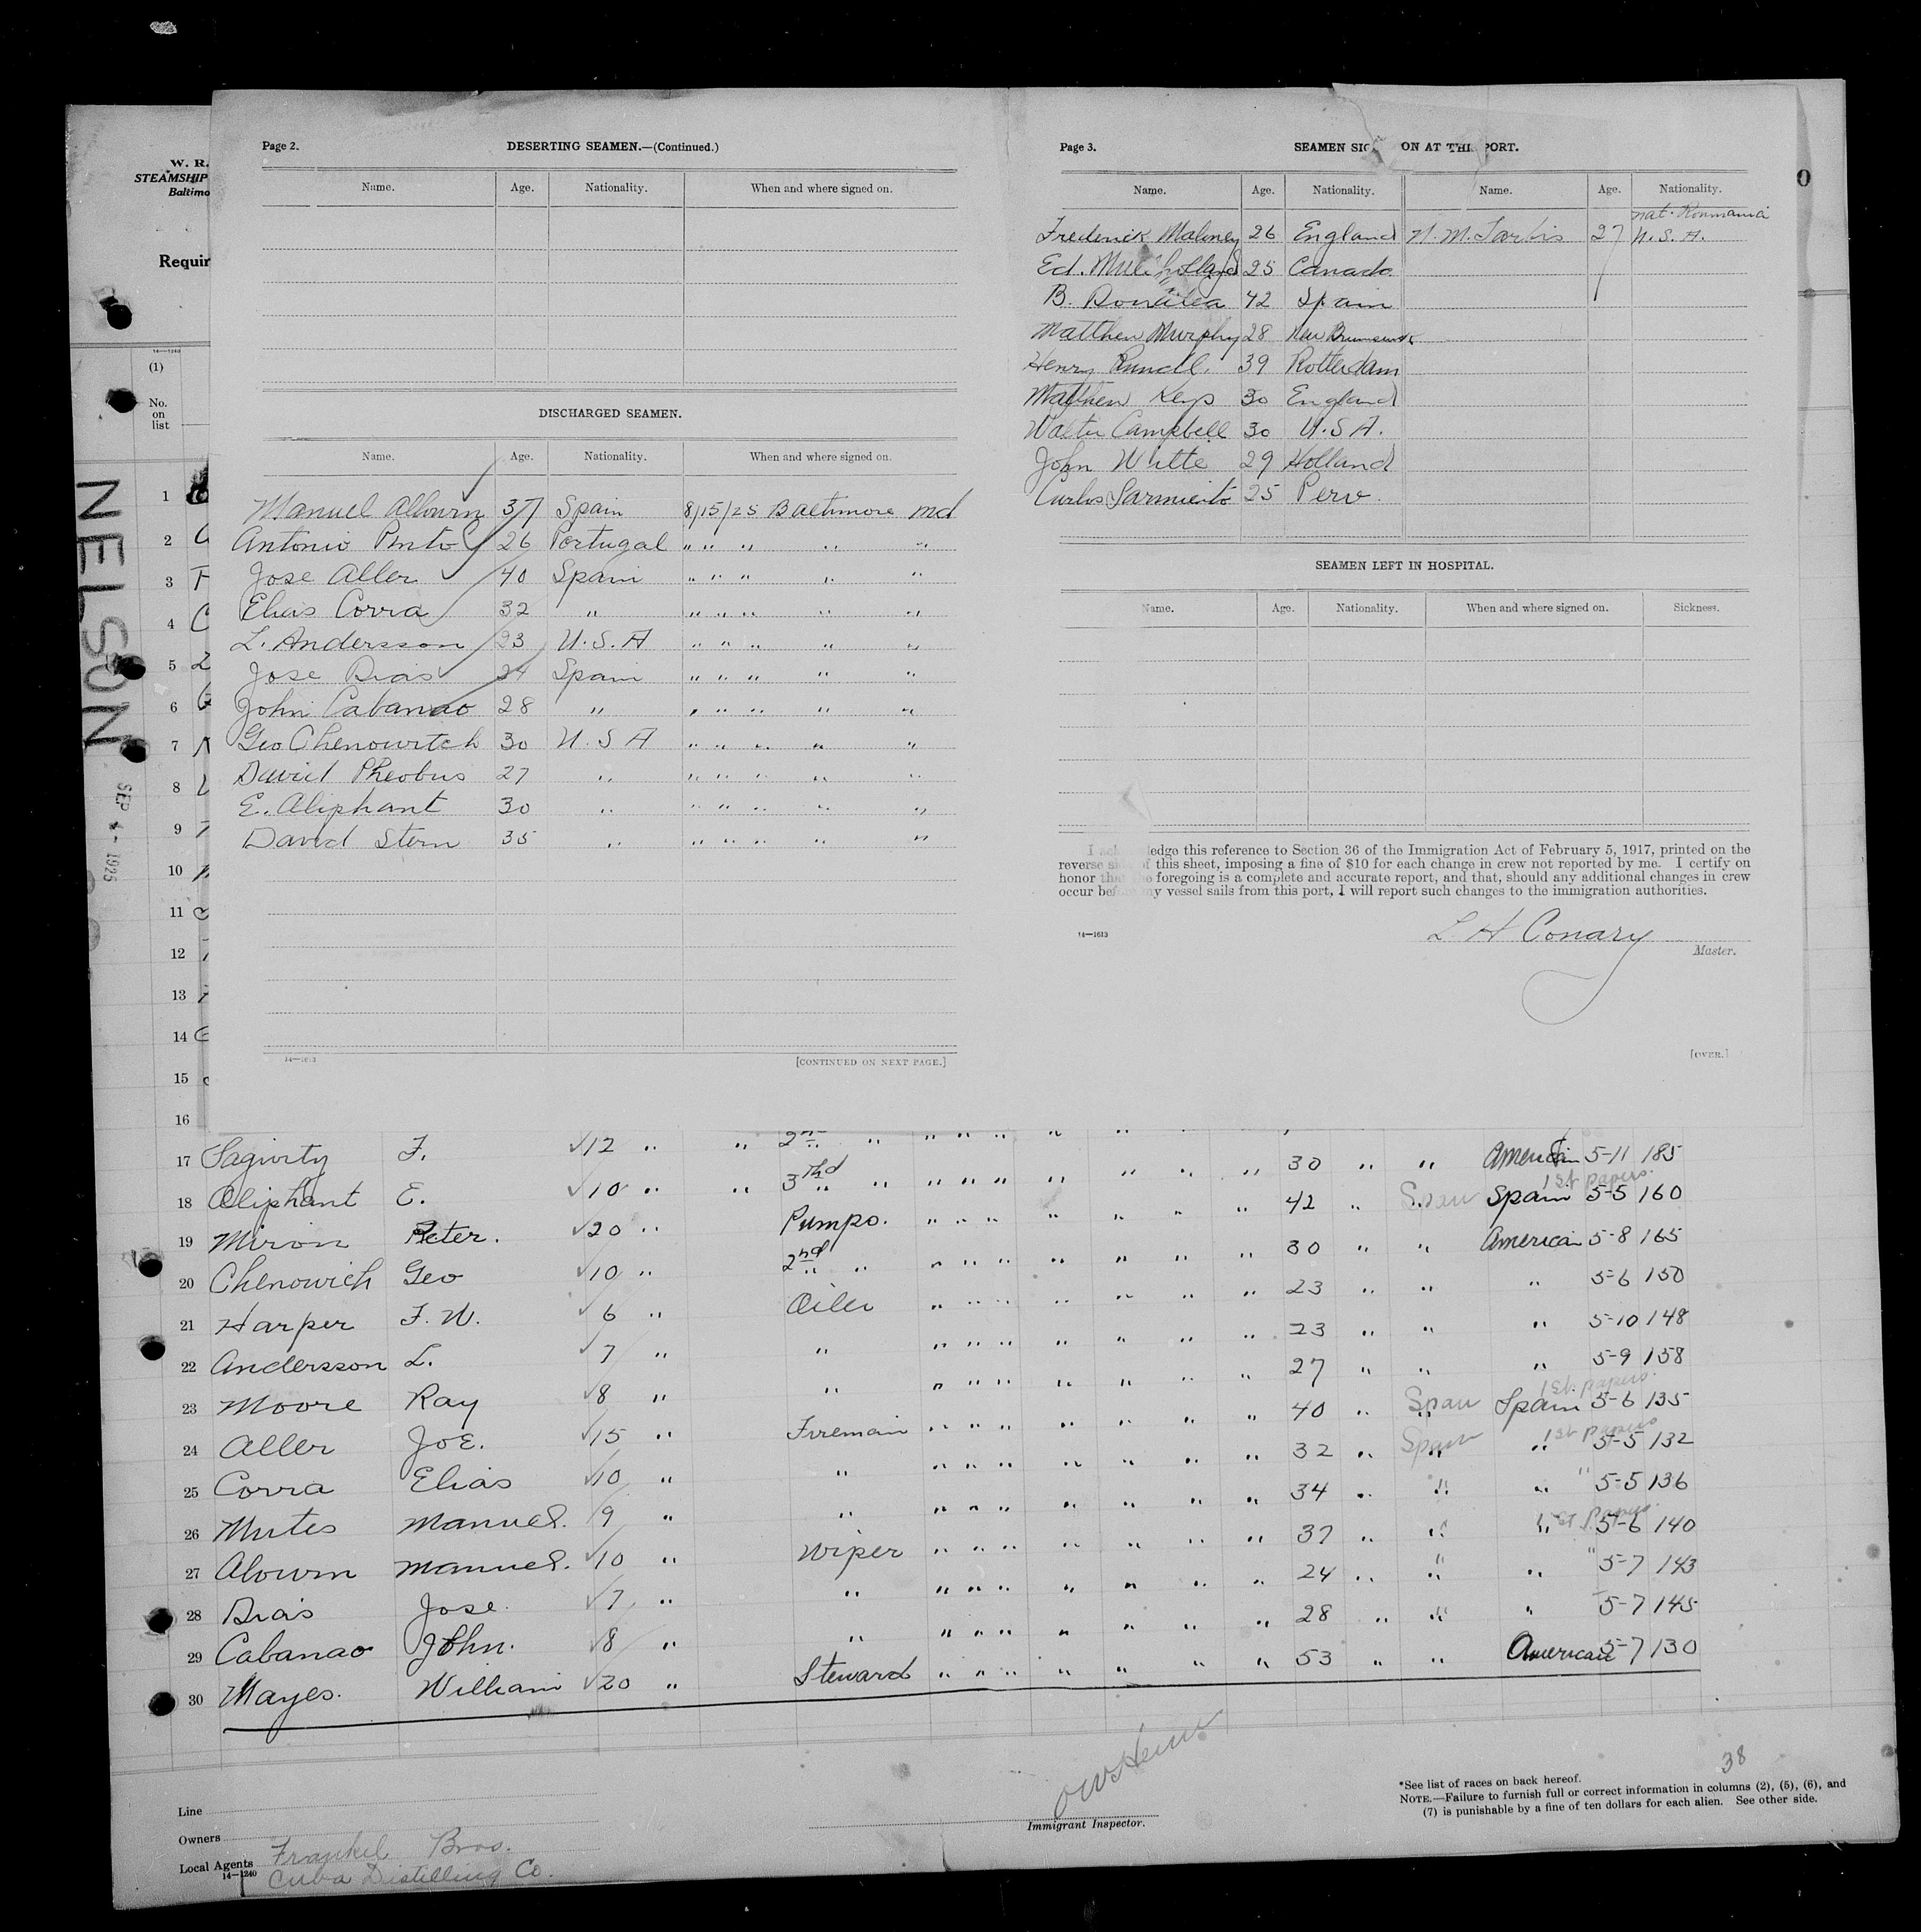 W. R.
STEAMSHIP
Baltimo
Requir
NELSON
SEP 4- 1925
14—1240
(1)
No.
on
list
Page 2.
DESERTING SEAMEN.—(Continued.)
Name. Age. Nationality. When and where signed on.
DISCHARGED SEAMEN.
Name. Age. Nationality. When and where signed on.
Manuel Alowrn 37 Spain 8/15/25 Baltimore Md
Antonio Pinto 26 Portugal " " " " "
Jose Aller 40 Spain " " " " "
Elias Corra 32 " " " " " "
L. Andersson 23 U.S.A " " " " "
Jose Dias 24 Spain " " " " "
John Cabanao 28 " " " " " "
Geo Chenowitch 30 U.S A " " " " "
David Pheobus 27 " " " " " "
E. Aliphant 30 " " " " " "
David Stern 35 " " " " " "
14—1613
[CONTINUED ON NEXT PAGE.]
Page 3.
SEAMEN SIG ON AT THI PORT.
Name. Age. Nationality. Name. Age. Nationality.
nat. Roumania
Frederick Maloney 26 England 27 U.S.A.
Ed. Mulholland 25 Canada
B. 42 Spain
Matthew Murphy 28 New Brunswick
Henry 39 Rotterdam
Mathew Keys 30 England
Walter Campbell 30 U.S A.
John Witte 29 Holland
Carlos Sarmiento 25 Peru.
SEAMEN LEFT IN HOSPITAL.
Name. Age. Nationality. When and where signed on. Sickness.
I ack ledge this reference to Section 36 of the Immigration Act of February 5, 1917, printed on the
reverse si of this sheet, imposing a fine of $10 for each change in crew not reported by me. I certify on
honor that the foregoing is a complete and accurate report, and that, should any additional changes in crew
occur bef my vessel sails from this port, I will report such changes to the immigration authorities.
L H Conary
Master.
14—1613
[OVER.]
1
2
3
4
5
6
7
8
9
10
11
12
13
14
15
16
17 Fagivity F. 12 " " 2nd " " " " " " " 30 " " American 5-11 185
18 Oliphant E. 10 " " 3rd " " " " " " " " 42 " Span Spain 1st papers. 5-5 160
19 Miron Peter. 20 " Pumpo. " " " " " " " 30 " " American 5-8 165
20 Chenowich Geo 10 " 2nd " " " " " " " " " 23 " " " 5-6 150
21 Harper F. W. 6 " Oiler " " " " " " " 23 " " " 5-10 148
22 Andersson L. 7 " " " " " " " " " 27 " " " 5-9 158
23 Moore Ray 8 " " " " " " " " " 40 " Span Spain 1st papers. 5-6 135
24 Aller JoE. 15 " Fireman " " " " " " " 32 " Span " 1st papers 5-5 132
25 Corra Elias 10 " " " " " " " " " 34 " " " " 5-5 136
26 Mutes Manuel. 9 " " " " " " " " " 37 " " " 1st Papers. 5-6 140
27 Alowrn Manuel. 10 " Wiper " " " " " " " 24 " " " " 5-7 143
28 Dias Jose. 7 " " " " " " " " " 28 " " " 5-7 145
29 Cabanao John. 8 " " " " " " " " " 53 " " American 5-7 130
30 Mayes. William 20 " Steward " " " " " " "
38
*See list of races on back hereof.
NOTE.—Failure to furnish full or correct information in columns (2), (5), (6), and
(7) is punishable by a fine of ten dollars for each alien. See other side.
Immigrant Inspector.
Line
Owners
Local Agents Frankel Bros.
Cuba Distilling Co.
14—1240